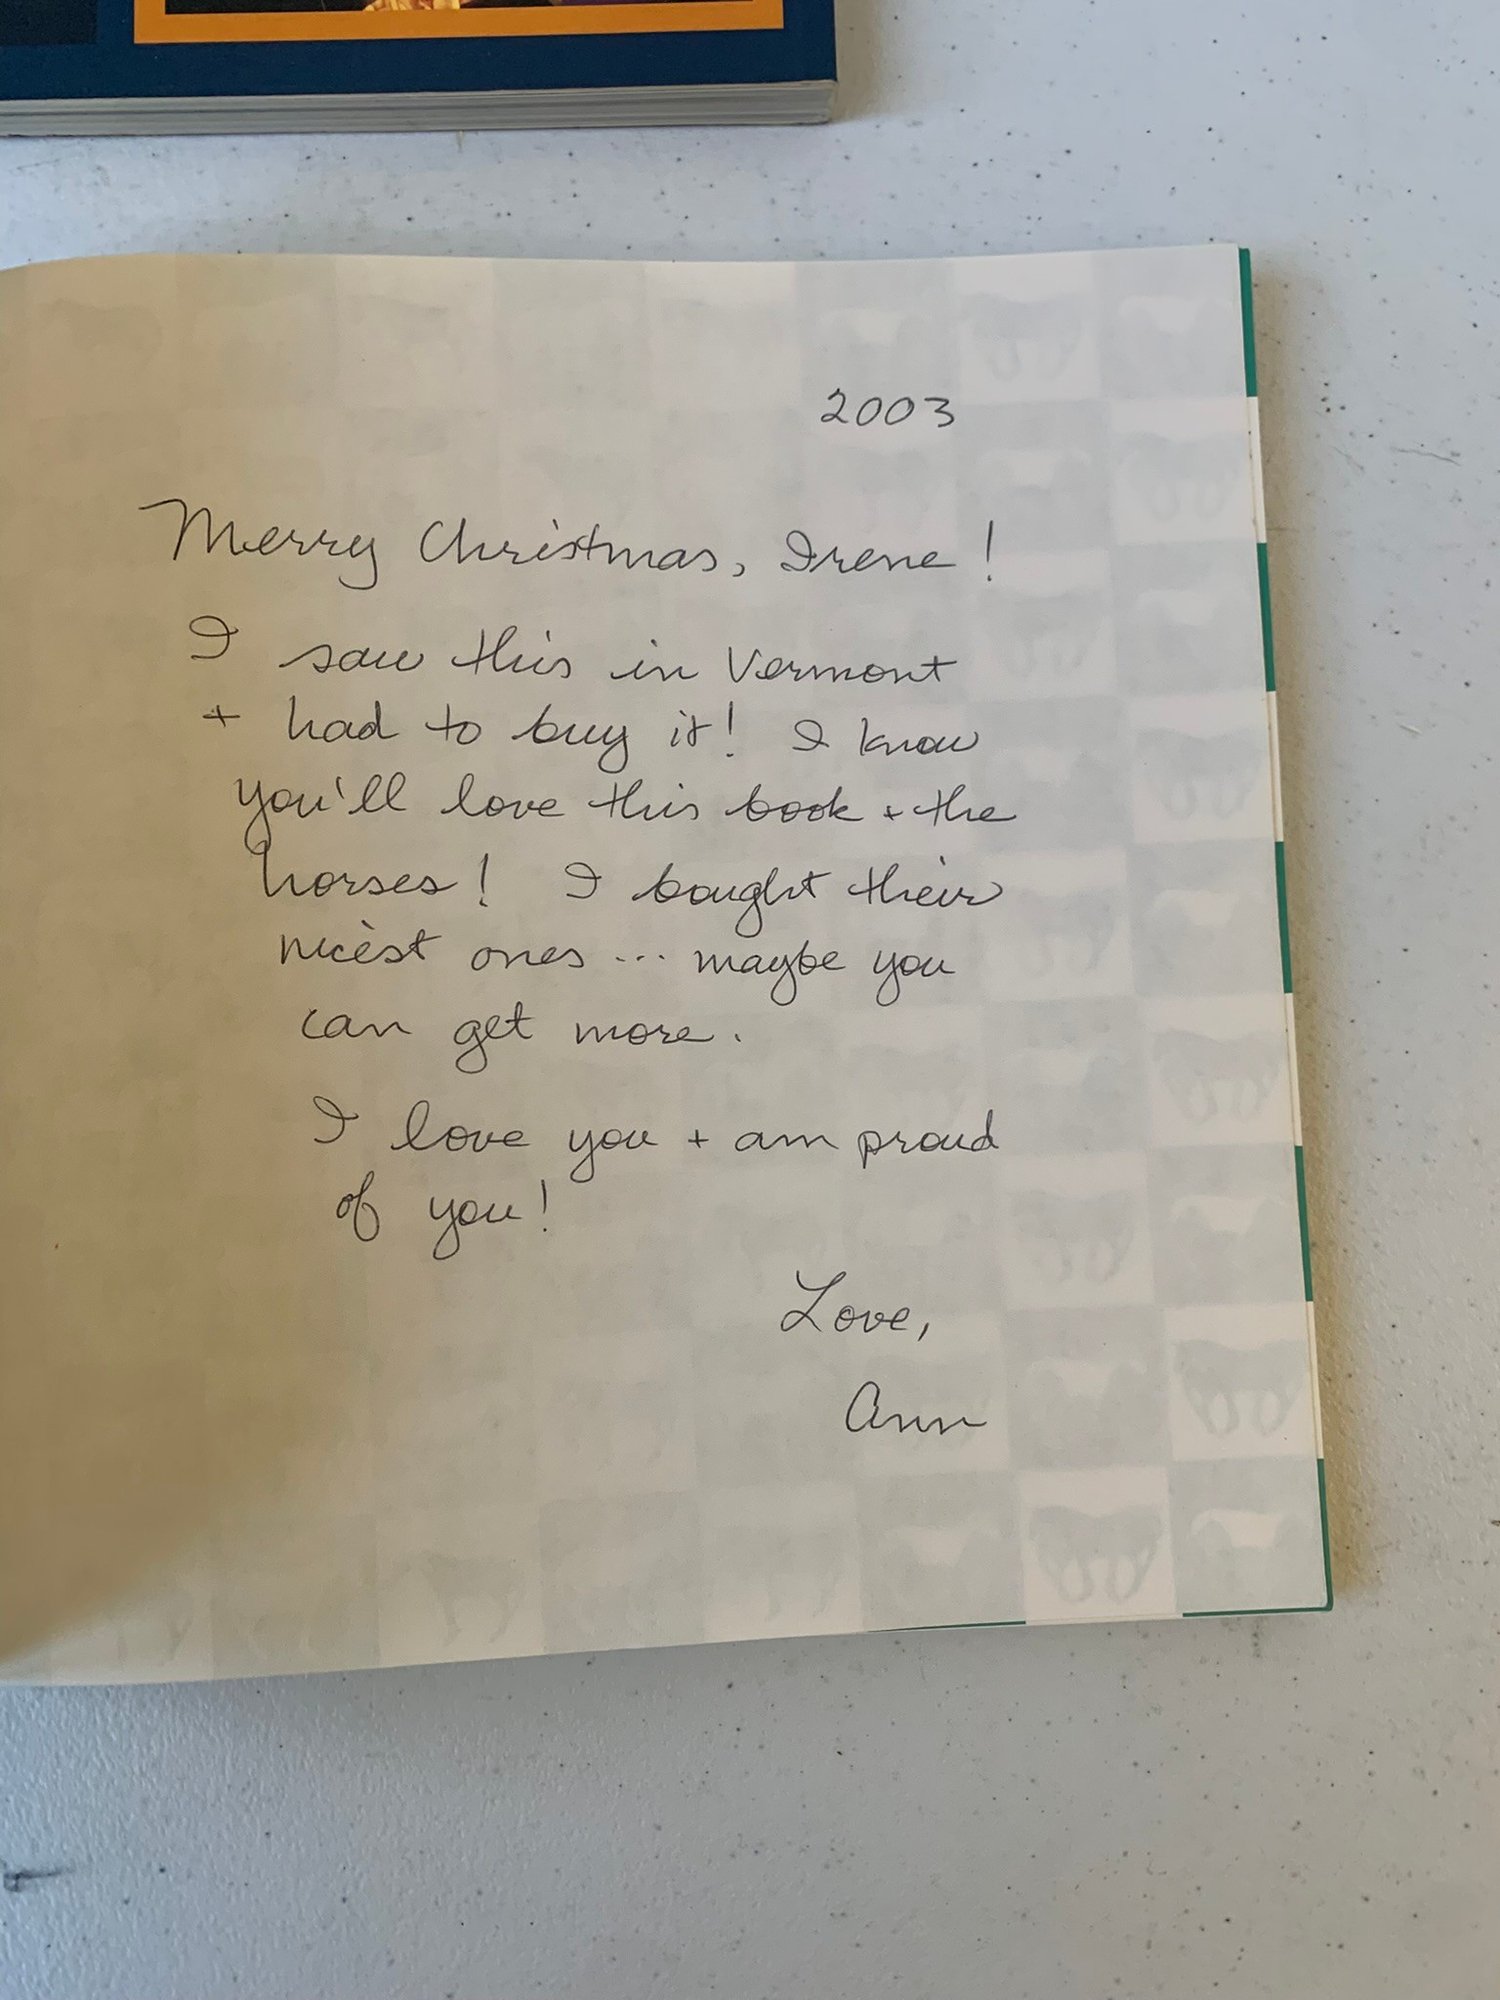 2003
Merry Christmas, Irene!
I saw this in Vermont
+ had to buy it! I know
you'll love this book + the
horses! I bought their
nicest ones ... maybe you
can get more.
I love you + am proud
of you!
Love,
Ann